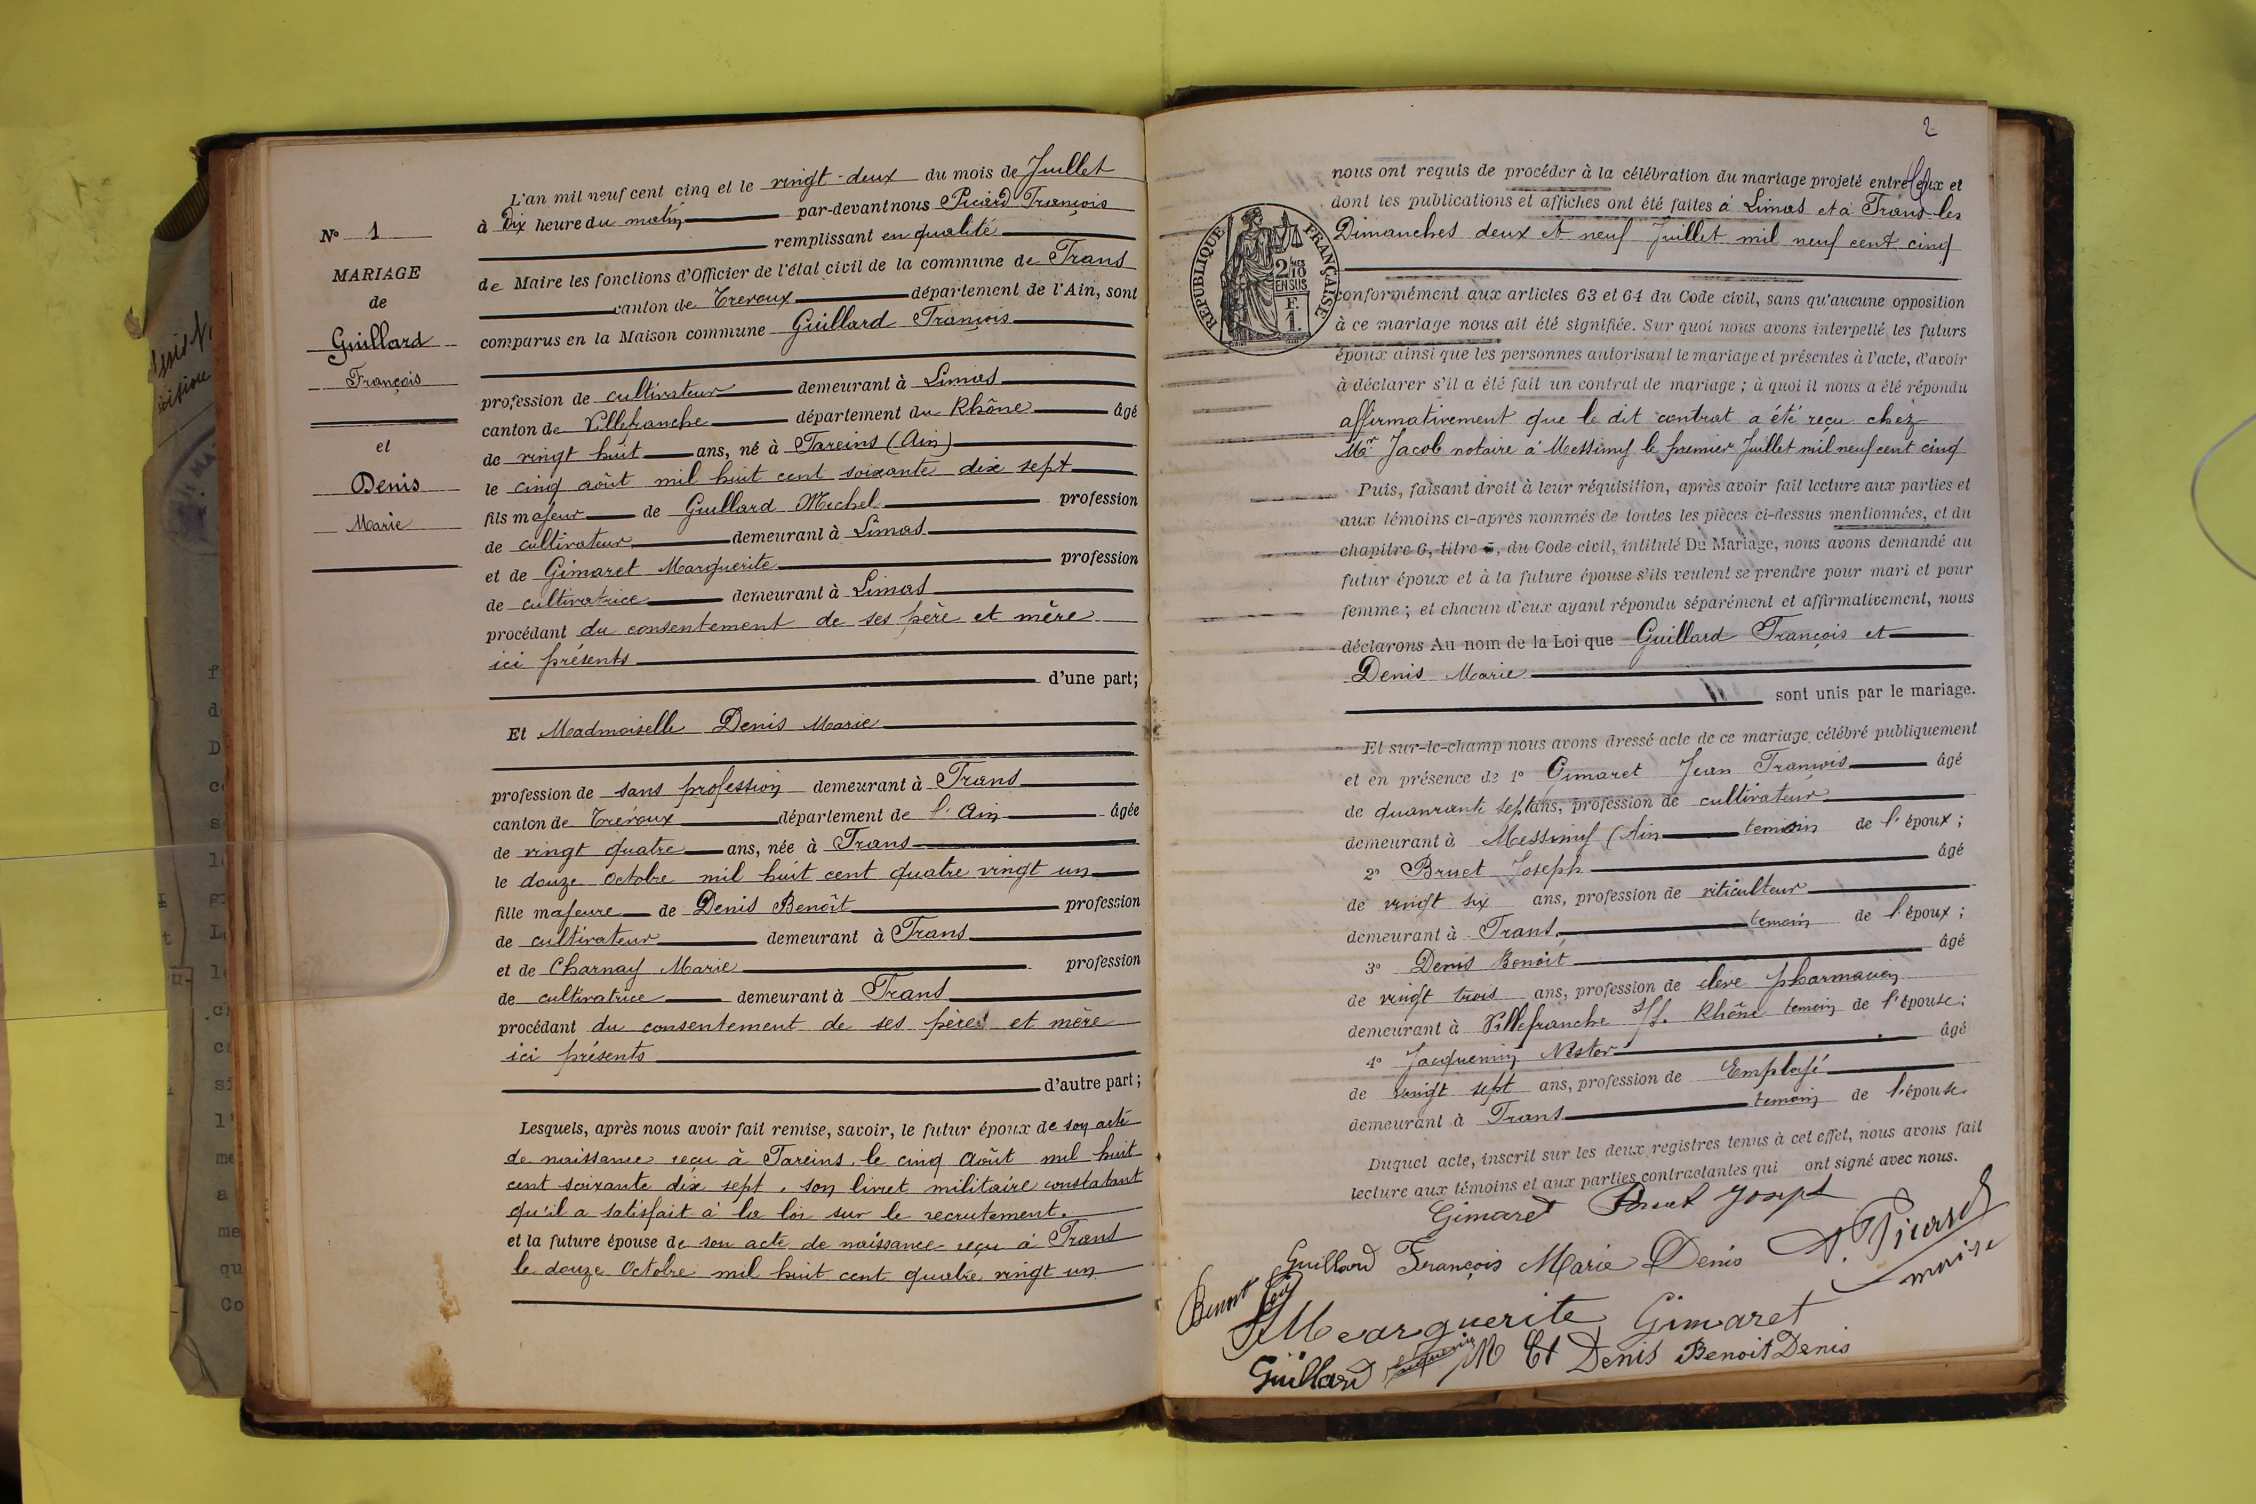 N° 1
MARIAGE
de
Guillard
François
et
Denis
Marie
L'an mil neuf cent cinq et le vingt-deux du mois de Juillet
à Dix heure du matin par-devant nous Picard François
remplissant en qualité
de Maire les fonctions d'Officier de l'état civil de la commune de Trans
canton de Trevoux département de l'Ain, sont
comparus en la Maison commune Guillard François
profession de cultivateur demeurant à Limas
canton de Villefranche département du Rhône âgé
de vingt huit ans, né à Tareins (Ain)
le cinq août mil huit cent soixante dix sept
fils majeur de Guillard Michel profession
de cultivateur demeurant à Limas
et de Gimaret Marguerite profession
de cultivatrice demeurant à Limas
procédant du consentement de ses père et mère
ici présents
d'une part;
Et Madmoiselle Denis Marie
profession de sans profession demeurant à Trans
canton de Trévoux département de l'Ain âgée
de vingt quatre ans, née à Trans
le douze Octobre mil huit cent quatre vingt un
fille majeure de Denis Benoît profession
de cultivateur demeurant à Trans
et de Charnay Marie profession
de cultivatrice demeurant à Trans
procédant du consentement de ses père et mère
ici présents
d'autre part;
Lesquels, après nous avoir fait remise, savoir, le futur époux de son acte
de naissance reçu à Tareins le cinq Août mil huit
cent soixante dix sept, son livret militaire constatant
qu'il a satisfait à la loi sur le recrutement.
et la future épouse de son acte de naissance reçu à Trans
le douze Octobre mil huit cent quatre vingt un
2
nous ont requis de procéder à la célébration du mariage projeté entre eux et
dont les publications et affiches ont été faites à Limas et à Trans les
Dimanches deux et neuf Juillet mil neuf cent cinq
RÉPUBLIQUE FRANÇAISE
2/10
EN SUS
F.
1.
conformément aux articles 63 et 64 du Code civil, sans qu'aucune opposition
à ce mariage nous ait été signifiée. Sur quoi nous avons interpellé les futurs
époux ainsi que les personnes autorisant le mariage et présentes à l'acte, d'avoir
à déclarer s'il a été fait un contrat de mariage; à quoi il nous a été répondu
affirmativement que le dit contrat a été reçu chez
Mr Jacob notaire à Messimy le premier Juillet mil neuf cent cinq
Puis, faisant droit à leur réquisition, après avoir fait lecture aux parties et
aux témoins ci-après nommés de toutes les pièces ci-dessus mentionnées, et du
chapitre 6, titre 5, du Code civil, intitulé Du Mariage, nous avons demandé au
futur époux et à la future épouse s'ils veulent se prendre pour mari et pour
femme; et chacun d'eux ayant répondu séparément et affirmativement, nous
déclarons Au nom de la Loi que Guillard François et
Denis Marie
sont unis par le mariage.
Et sur-le-champ nous avons dressé acte de ce mariage célébré publiquement
et en présence de 1° Gimaret Jean François âgé
de quanrante sept ans, profession de cultivateur
demeurant à Messimy (Ain temoin de l'époux;
2° Bruet Joseph âgé
de vingt six ans, profession de viticulteur
demeurant à Trans. temoin de l'époux;
3° Denis Benoit âgé
de vingt trois ans, profession de élève pharmacien
demeurant à Villefranche S/S. Rhône temoin de l'épouse;
4° Jacquemin Nestor âgé
de vingt sept ans, profession de Employé
demeurant à Trans temoin de l'épouse.
Duquel acte, inscrit sur les deux registres tenus à cet effet, nous avons fait
lecture aux témoins et aux parties contractantes qui ont signé avec nous.
Gimaret Bruet Joseph
Guillard François Marie Denis F. Picard
maire
Benoit
Marguerite Gimaret
Guillard M Ct Denis Benoit Denis